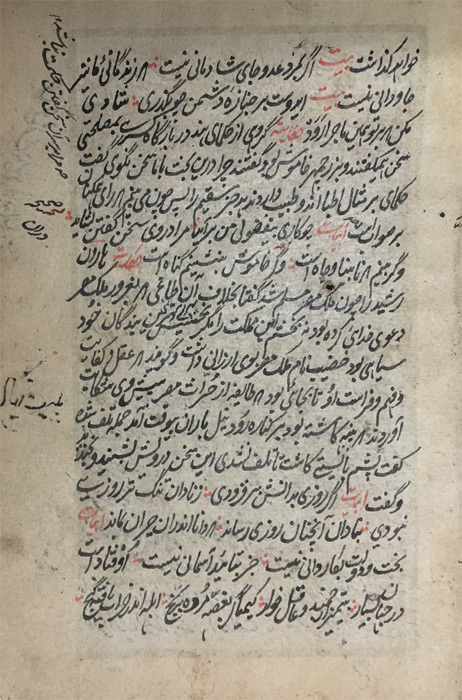 خواهد گذاشت بیت اگر بمرد عدو جای شادمانی نیست که زندگانی ما نیز
جاودانی نیست بیت ای دوست بر جنازه دشمن چو بگذری شادی
مکن که بر تو همین ماجرا رود حکایت گروهی از حکمای هند در بارگاه کسری بمصلحتی
سخن همیگفتند و بزرجمهر خاموش بود گفتند چرا درین بحث با ما سخن نگوئی گفت
حکمای بر مثال اطبااند و طبیب دارو ندهد جز سقیم را پس چون می بینم که رای شما
بر صوابست ابیات چو کاری بی فضول من برآید مرا در وی سخن گفتن نشاید
وگر بینم که نابینا و چاه است وگر خاموش بنشینم گناه است حکایت هارون
الرشید را چون ملک مصر مسلم شد گفتا بخلاف آن طاغی که بغرور ملک مصر
دعوی خدای کرده بود نبخشم این مملکت را مگر بخسیس ترین بندگان خود
سیاهی بود خصیب نام ملک مصر بوی ارزانی داشت و گویند که عقل و کفایت
و فهم و فراست او تا بجائی بود که طایفه از حراث مصر پیش وی شکایت
آوردند که پنبه کاشته بودیم بر کناره رود نیل باران بیوقت آمد جمله تلف شده
گفت پشم بایستی کاشت تا تلف نشدی این سخن درویش بشنید و بخندید
و گفت ابیات اگر روزی بدانش بر فزودی ز نادان تنگ تر روزی
نبودی بنادان آنچنان روزی رساند که دانا اندران حیران بماند ابیات
بخت و دولت بکاردانی نیست جز بتایید آسمانی نیست اوفتاد است
در جهان بسیار بی تمیز ارجمند و عاقل خوار کیمیاگر بغصه مرده برنج ابله اندر خرابه یافته گنج